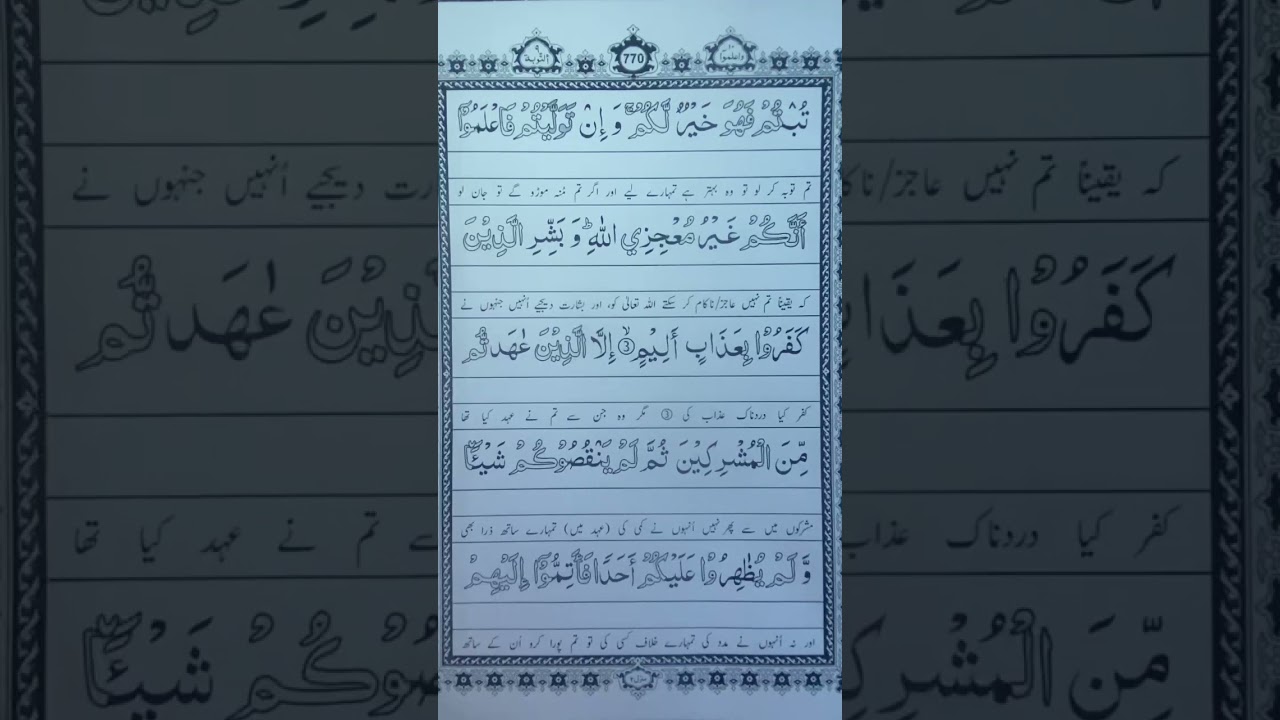 ٩ التوبة
770
١٠ واعلموا
تُبْتُمْ فَهُوَ خَيْرٌ لَّكُمْ ۚ وَ اِنْ تَوَلَّيْتُمْ فَاعْلَمُوْۤا
تم توبہ کر لو تو وہ بہتر ہے تمہارے لیے اور اگر تم مُنہ موڑو گے تو جان لو
اَنَّكُمْ غَيْرُ مُعْجِزِي اللّٰهِ ؕ وَ بَشِّرِ الَّذِيْنَ
کہ یقینًا تم نہیں عاجز/ناکام کر سکتے اللہ تعالیٰ کو، اور بشارت دیجیے اُنہیں جنہوں نے
كَفَرُوْا بِعَذَابٍ اَلِيْمٍ ۙ③ اِلَّا الَّذِيْنَ عٰهَدْتُّمْ
کفر کیا دردناک عذاب کی ③ مگر وہ جن سے تم نے عہد کیا تھا
مِّنَ الْمُشْرِكِيْنَ ثُمَّ لَمْ يَنْقُصُوْكُمْ شَيْـًٔا
مشرکوں میں سے پھر نہیں اُنہوں نے کمی کی (عہد میں) تمہارے ساتھ ذرا بھی
وَّ لَمْ يُظَاهِرُوْا عَلَيْكُمْ اَحَدًا فَاَتِمُّوْۤا اِلَيْهِمْ
اور نہ اُنہوں نے مدد کی تمہارے خلاف کسی کی تو تم پورا کرو اُن کے ساتھ